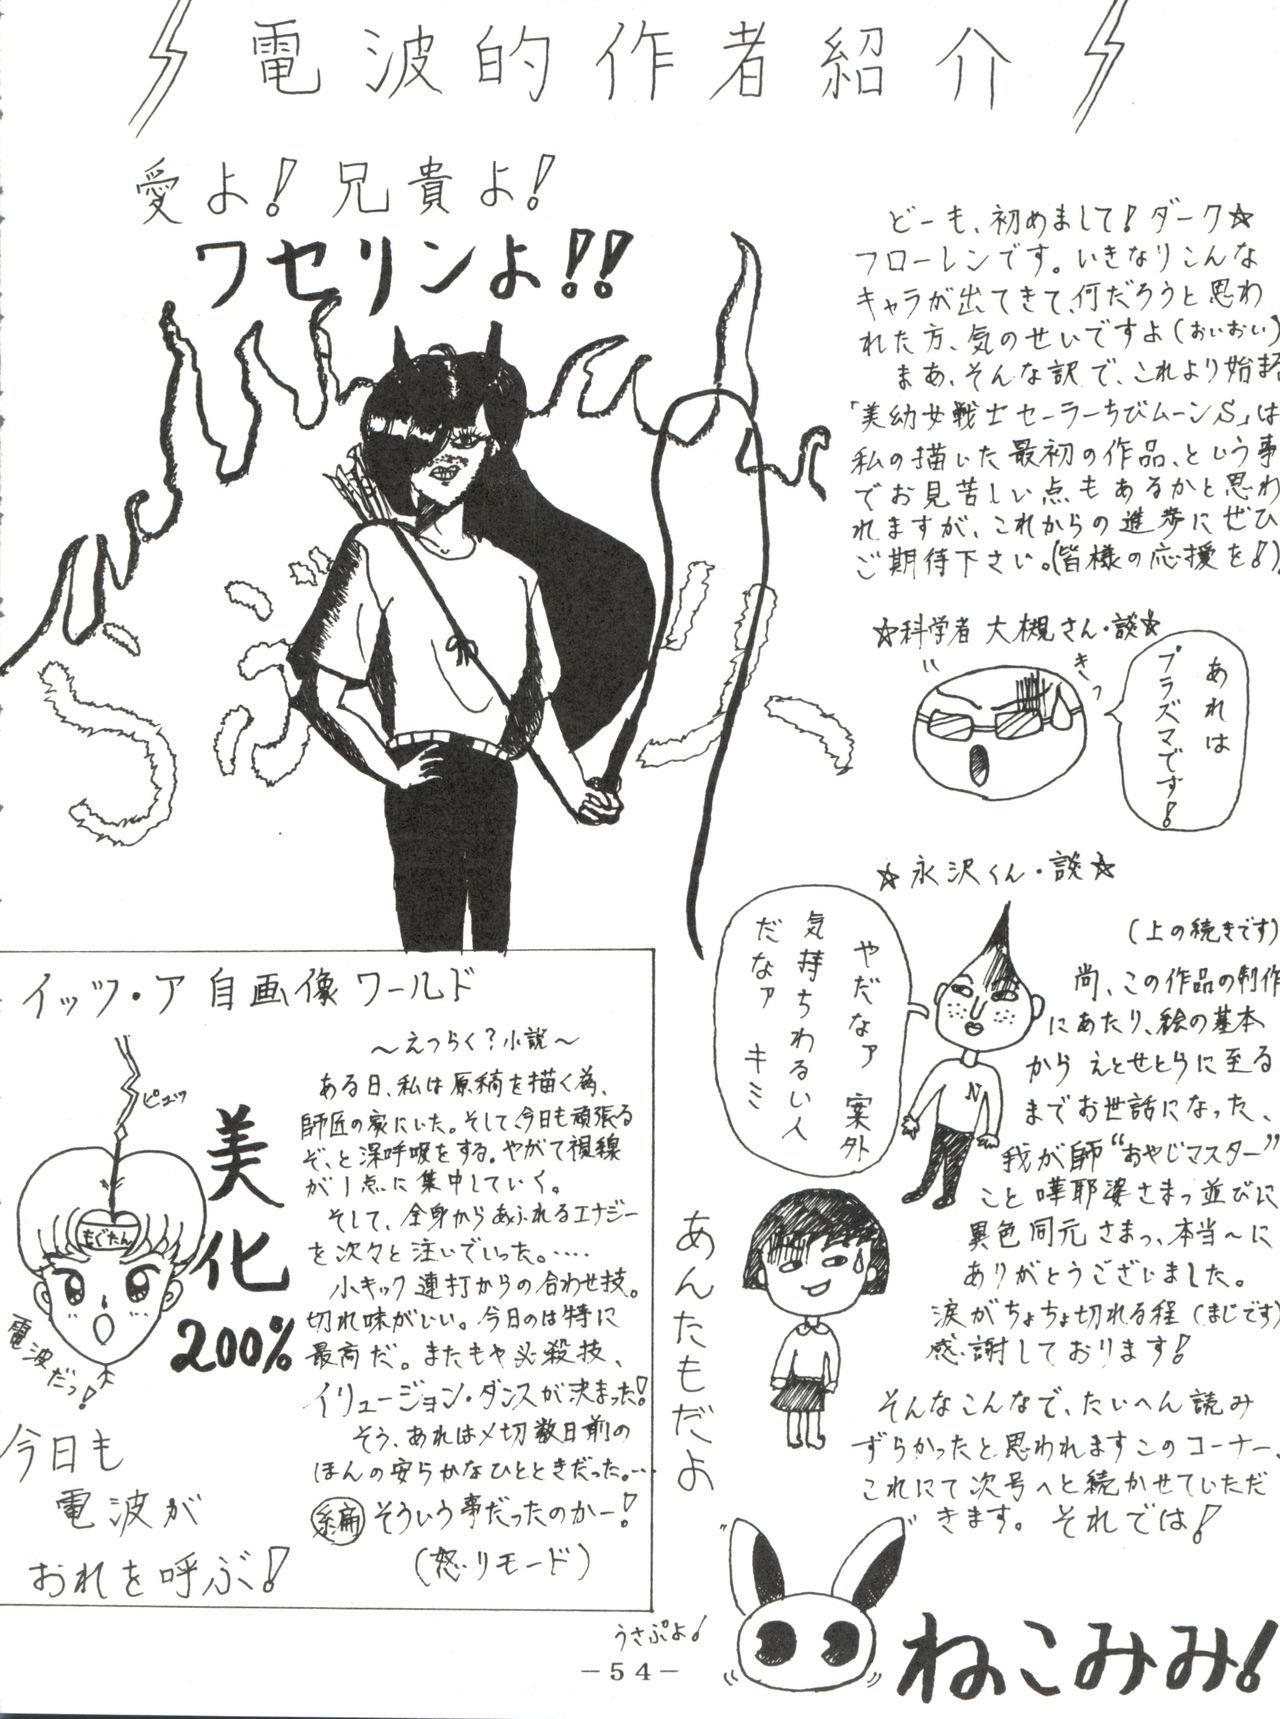 電波的作者紹介
愛よ!兄貴よ!
ワセリンよ!!
どーも、初めまして!ダーク☆
フローレンです。いきなりこんな
キャラが出てきて、何だろうと思わ
れた方、気のせいですよ(おいおい)
まあ、そんな訳で、これより始まる
「美幼女戦士セーラーちびムーンS」は
私の描いた最初の作品、という事
でお見苦しい点もあるかと思わ
れますが、これからの進歩にぜひ
ご期待下さい。(皆様の応援を!)。
☆科学者 大槻さん・談☆
きっ
あれは
プラズマです!
☆永沢くん・談☆
やだなァ 案外
気持ちわるい人
だなァ キミ
N
(上の続きです)
尚、この作品の制作
にあたり、絵の基本
から えとせとらに至る
までお世話になった、
我が師“おやじマスター”
こと 嘩耶婆さまっ並びに
異色同元さまっ、本当〜に
ありがとうございました。
涙がちょちょ切れる程(まじです)
感謝しております!
そんなこんなで、たいへん読み
ずらかったと思われますこのコーナー、
これにて次号へと続かせていただ
きます。それでは!
あんたもだよ
イッツ・ア 自画像ワールド
ピュッ
もぐたん
美化
200%
電波だっ!
今日も
電波が
おれを呼ぶ!
〜えつらく?小説〜
ある日、私は原稿を描く為、
師匠の家にいた。そして、今日も頑張る
ぞ、と深呼吸をする。やがて視線
が1点に集中していく。
そして、全身からあふれるエナジー
を次々と注いでいった。‥‥
小キック連打からの合わせ技。
切れ味がいい。今日のは特に
最高だ。またもや必殺技、
イリュージョン・ダンスが決まった!
そう、あれは〆切数日前の
ほんの安らかなひとときだった。…
編 そういう事だったのかー!
(怒リモード)
うさぷよ!
ねこみみ!
－54－